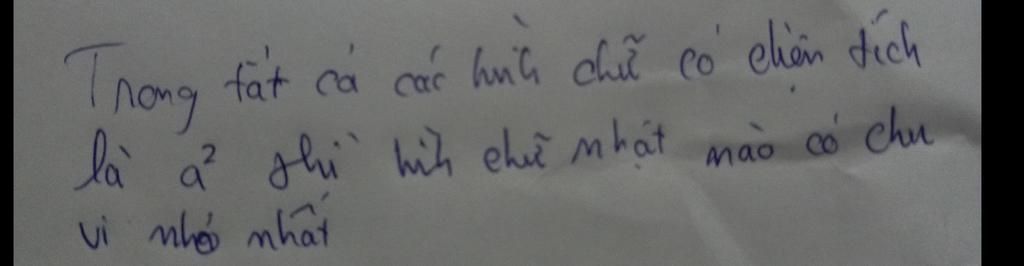 Trong tất cả các hình chữ có diện tích
là a² thì hình chữ nhật nào có chu
vi nhỏ nhất